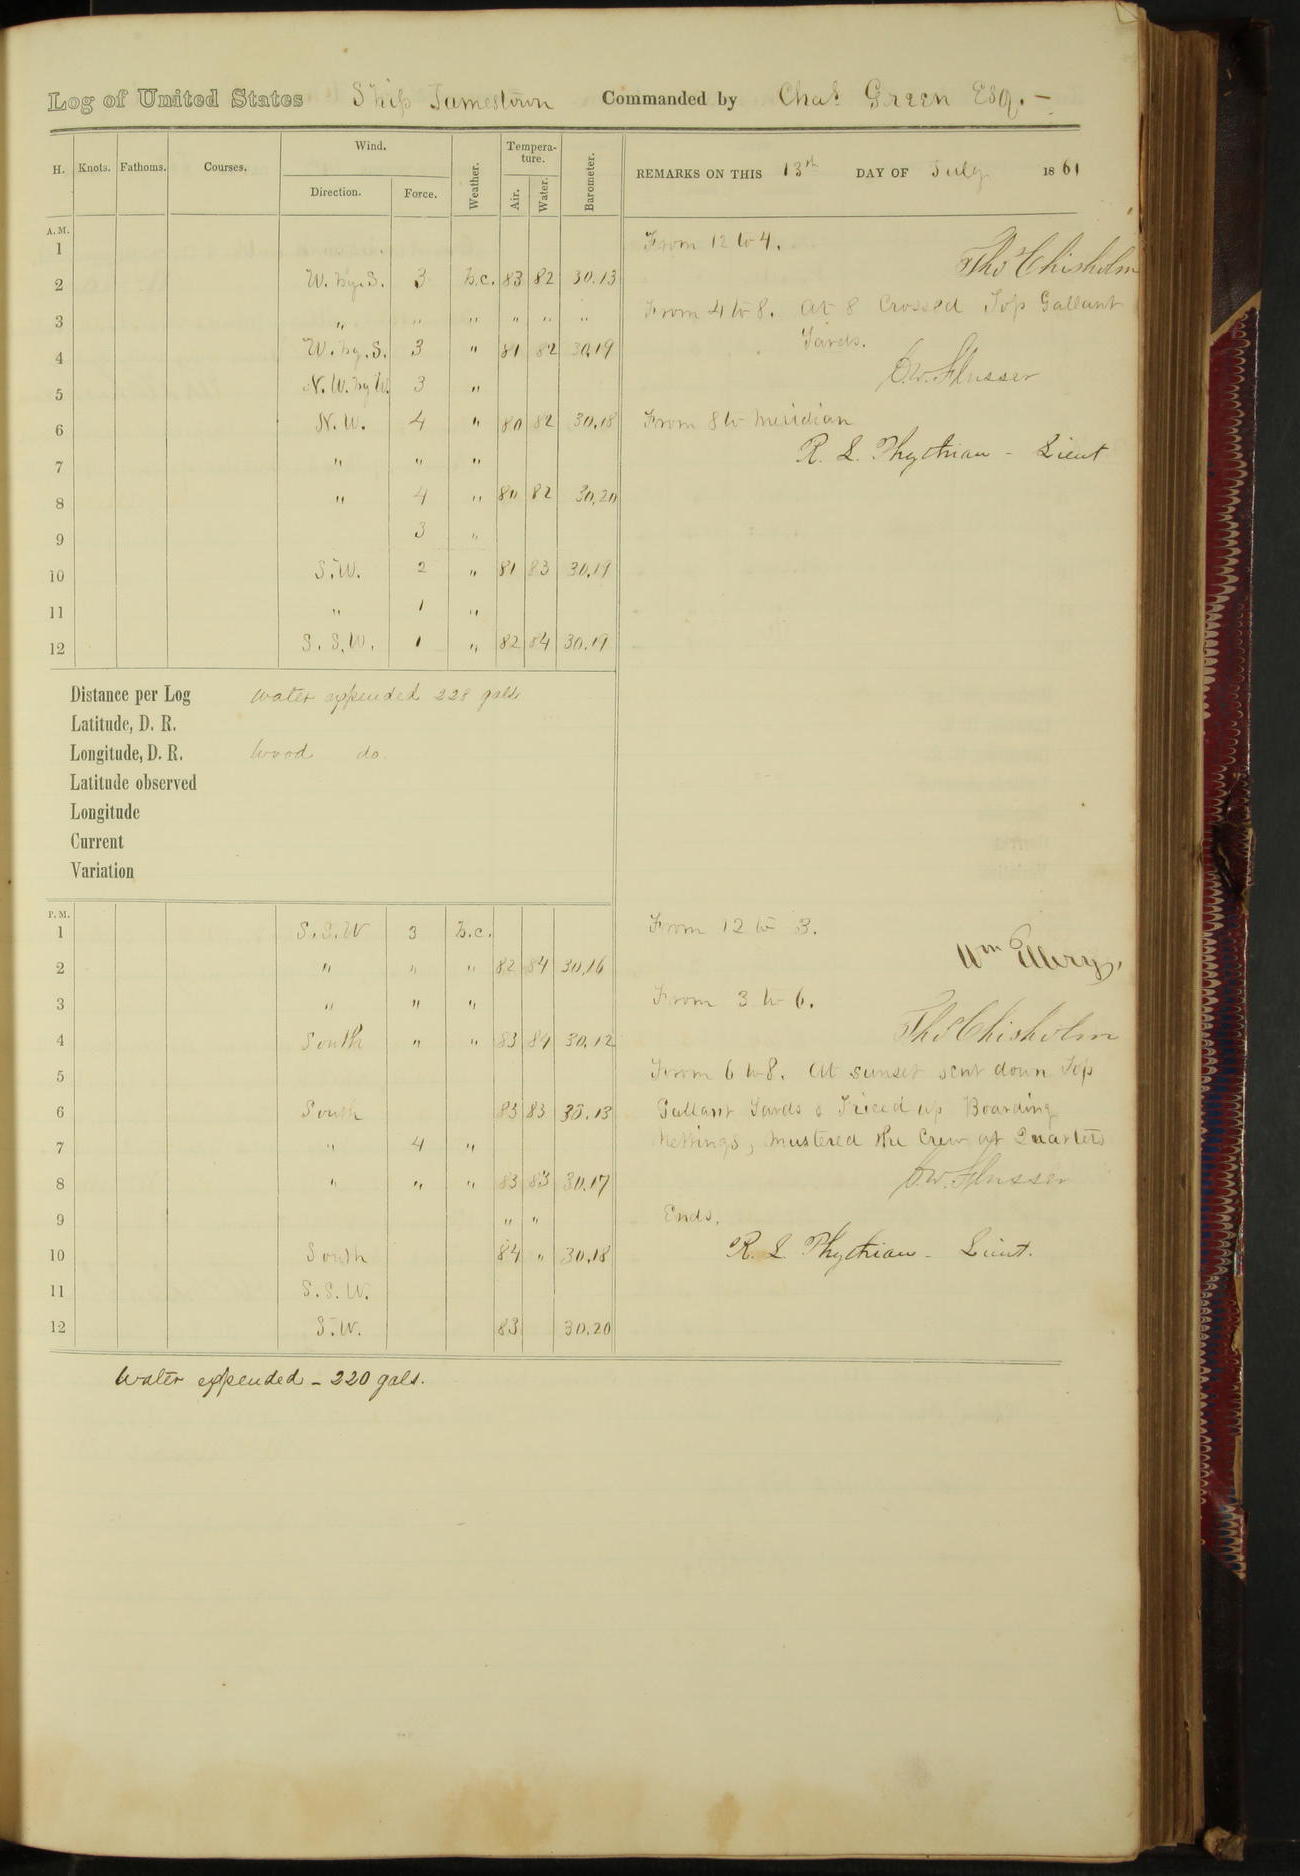 Log of United States Ship Jamestown Commanded by Chas Green Esq. —
H. Knots. Fathoms. Courses. Wind. Direction. Force. Weather. Tempera-ture. Air. Water. Barometer. REMARKS ON THIS 13th DAY OF July 1861
A.M.
1
2 W. by. S. 3 b.c. 83 82 30.13
3 " " " " " "
4 W. by. S. 3 " 81 82 30.19
5 N. W. by W. 3 "
6 N. W. 4 " 80 82 30.18
7 " " "
8 " 4 " 80 82 30.20
9 3 "
10 S. W. 2 " 81 83 30.19
11 " 1 "
12 S. S. W. 1 " 82 84 30.19
From 12 to 4.
Thos Chisholm
From 4 to 8. At 8 Crossed Top Gallant
Yards.
C. W. Flusser
From 8 to Meridian
R. L. Phythian - Lieut
Distance per Log Water expended 228 gals
Latitude, D. R.
Longitude, D. R. Wood do.
Latitude observed
Longitude
Current
Variation
P.M.
1 S. S. W 3 b.c.
2 " " " 82 84 30.16
3 " " "
4 South " " 83 84 30.12
5
6 South 83 83 30.13
7 " 4 "
8 " " " 83 83 30.17
9 " "
10 South 84 " 30.18
11 S. S. W.
12 S. W. 83 30.20
From 12 to 3.
Wm Ellery,
From 3 to 6.
Thos Chisholm
From 6 to 8. At sunset sent down Top
Gallant Yards & Triced up Boarding
Nettings, Mustered the Crew at Quarters
C. W. Flusser
Ends.
R. L. Phythian - Lieut.
Water expended - 220 gals.